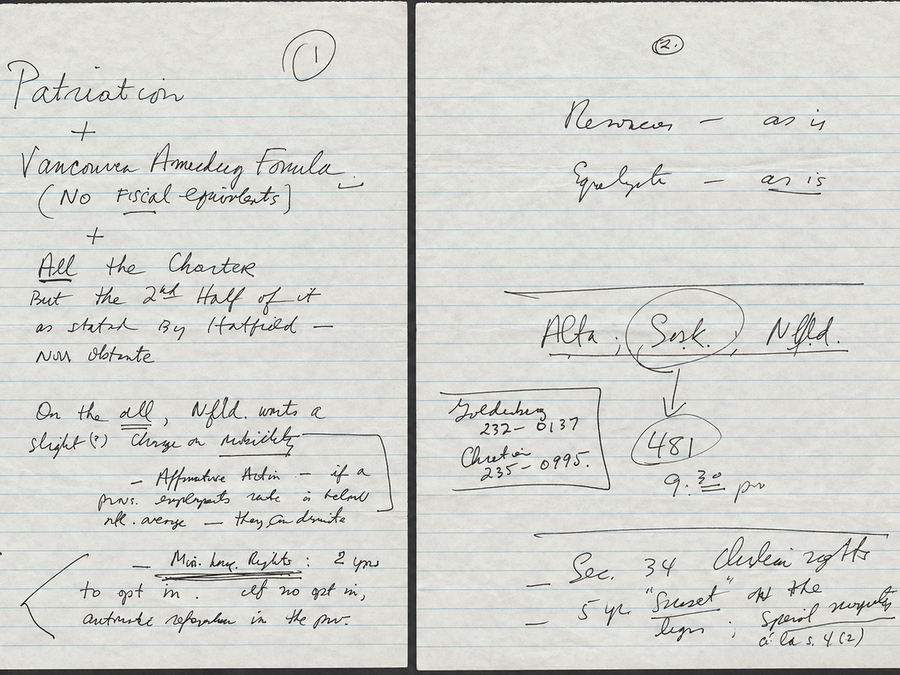 1
Patriation
+
Vancouver Amending Fomula
(No Fiscal equivalents)
+
All the Charter
But the 2nd Half of it
as stated By Hatfield —
non obstante
On the all, Nfld. wants a
slight (?) change on mobility
— Affirmative Action — if a
prov. employments rate is below
ntl. average — they can
— Min. Lang. Rights: 2 yrs
to opt in. If no opt in,
automatic referendum in the prov.
2.
Resources — as is
— as is
Alta, Sask., Nfld.
481
9:30 pm
Goldenberg
232-0137
Chretien
235-0995.
— Sec. 34 rights
— 5 yr "Sunset" on the
legis; special
à la s. 4(2)